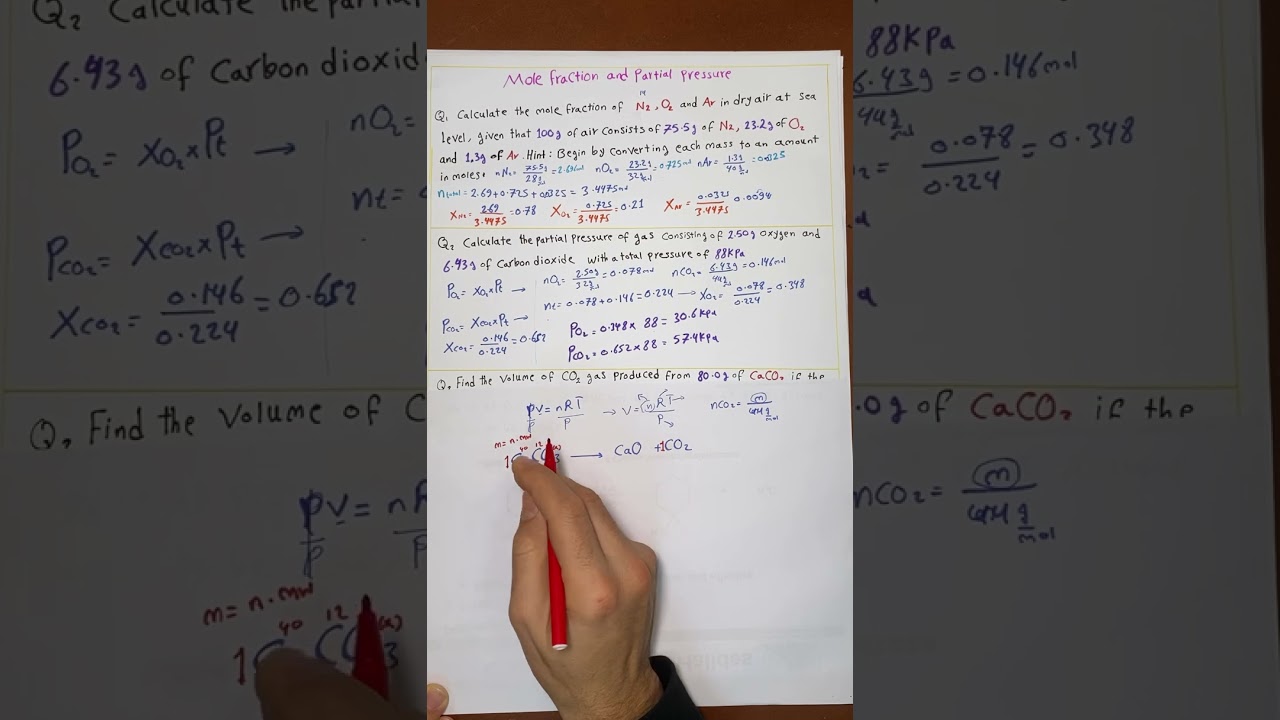 Mole fraction and Partial Pressure
14
Q1 Calculate the mole fraction of N2, O2 and Ar in dry air at sea
level, given that 100g of air consists of 75.5g of N2, 23.2g of O2
and 1.3g of Ar. Hint: Begin by converting each mass to an amount
in moles. nN2 = 75.5g / 28 = 2.696mol nO2 = 23.2g / 32 = 0.725mol nAr = 1.3g / 40 = 0.0325
n total = 2.69 + 0.725 + 0.0325 = 3.4475mol
XN2 = 2.69 / 3.4475 = 0.78 XO2 = 0.725 / 3.4475 = 0.21 XAr = 0.0325 / 3.4475 0.0094
Q2 Calculate the partial pressure of gas consisting of 2.50g oxygen and
6.43g of Carbon dioxide with a total pressure of 88KPa
PO2 = XO2 x Pt → nO2 = 2.50g / 32 = 0.078mol nCO2 = 6.43g / 44 = 0.146mol
nt = 0.078 + 0.146 = 0.224 → XO2 = 0.078 / 0.224 = 0.348
PCO2 = XCO2 x Pt →
XCO2 = 0.146 / 0.224 = 0.652
PO2 = 0.348 x 88 = 30.6KPa
PCO2 = 0.652 x 88 = 57.4KPa
Q, Find the volume of CO2 gas produced from 80.0g of CaCO3 if the
PV = nRT → V = (n)RT / P nCO2 = (m) / 44 g/mol
P P
m = n.mw
40 12
1 3 → CaO + 1CO2